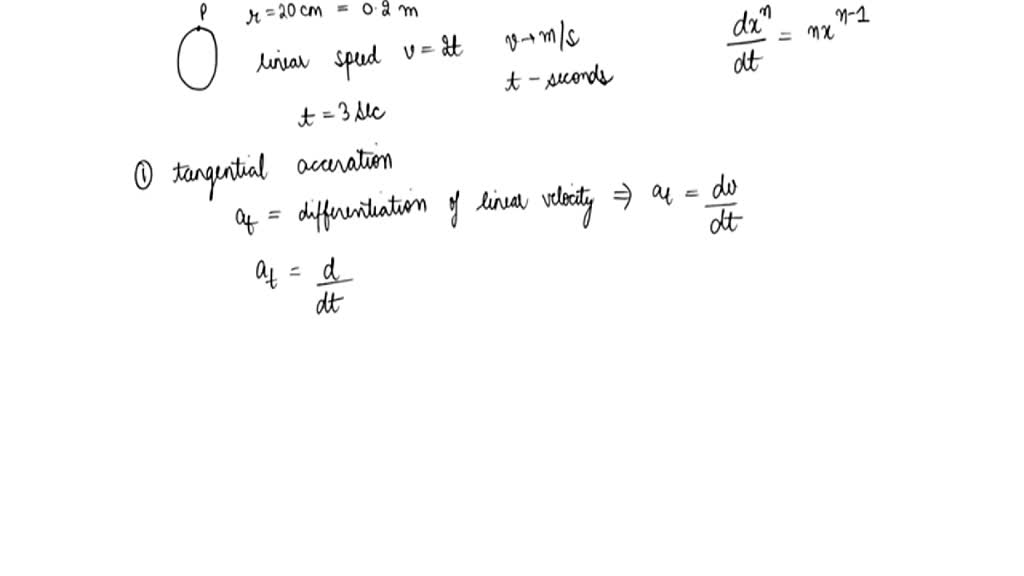 P
r = 20 cm = 0.2 m
linear speed v = 2t v → m/s
t - seconds
t = 3 sec
dxⁿ/dt = nxⁿ⁻¹
① tangential acceration
a_t = differentiation of linear velocity ⇒ a_t = dv/dt
a_t = d/dt